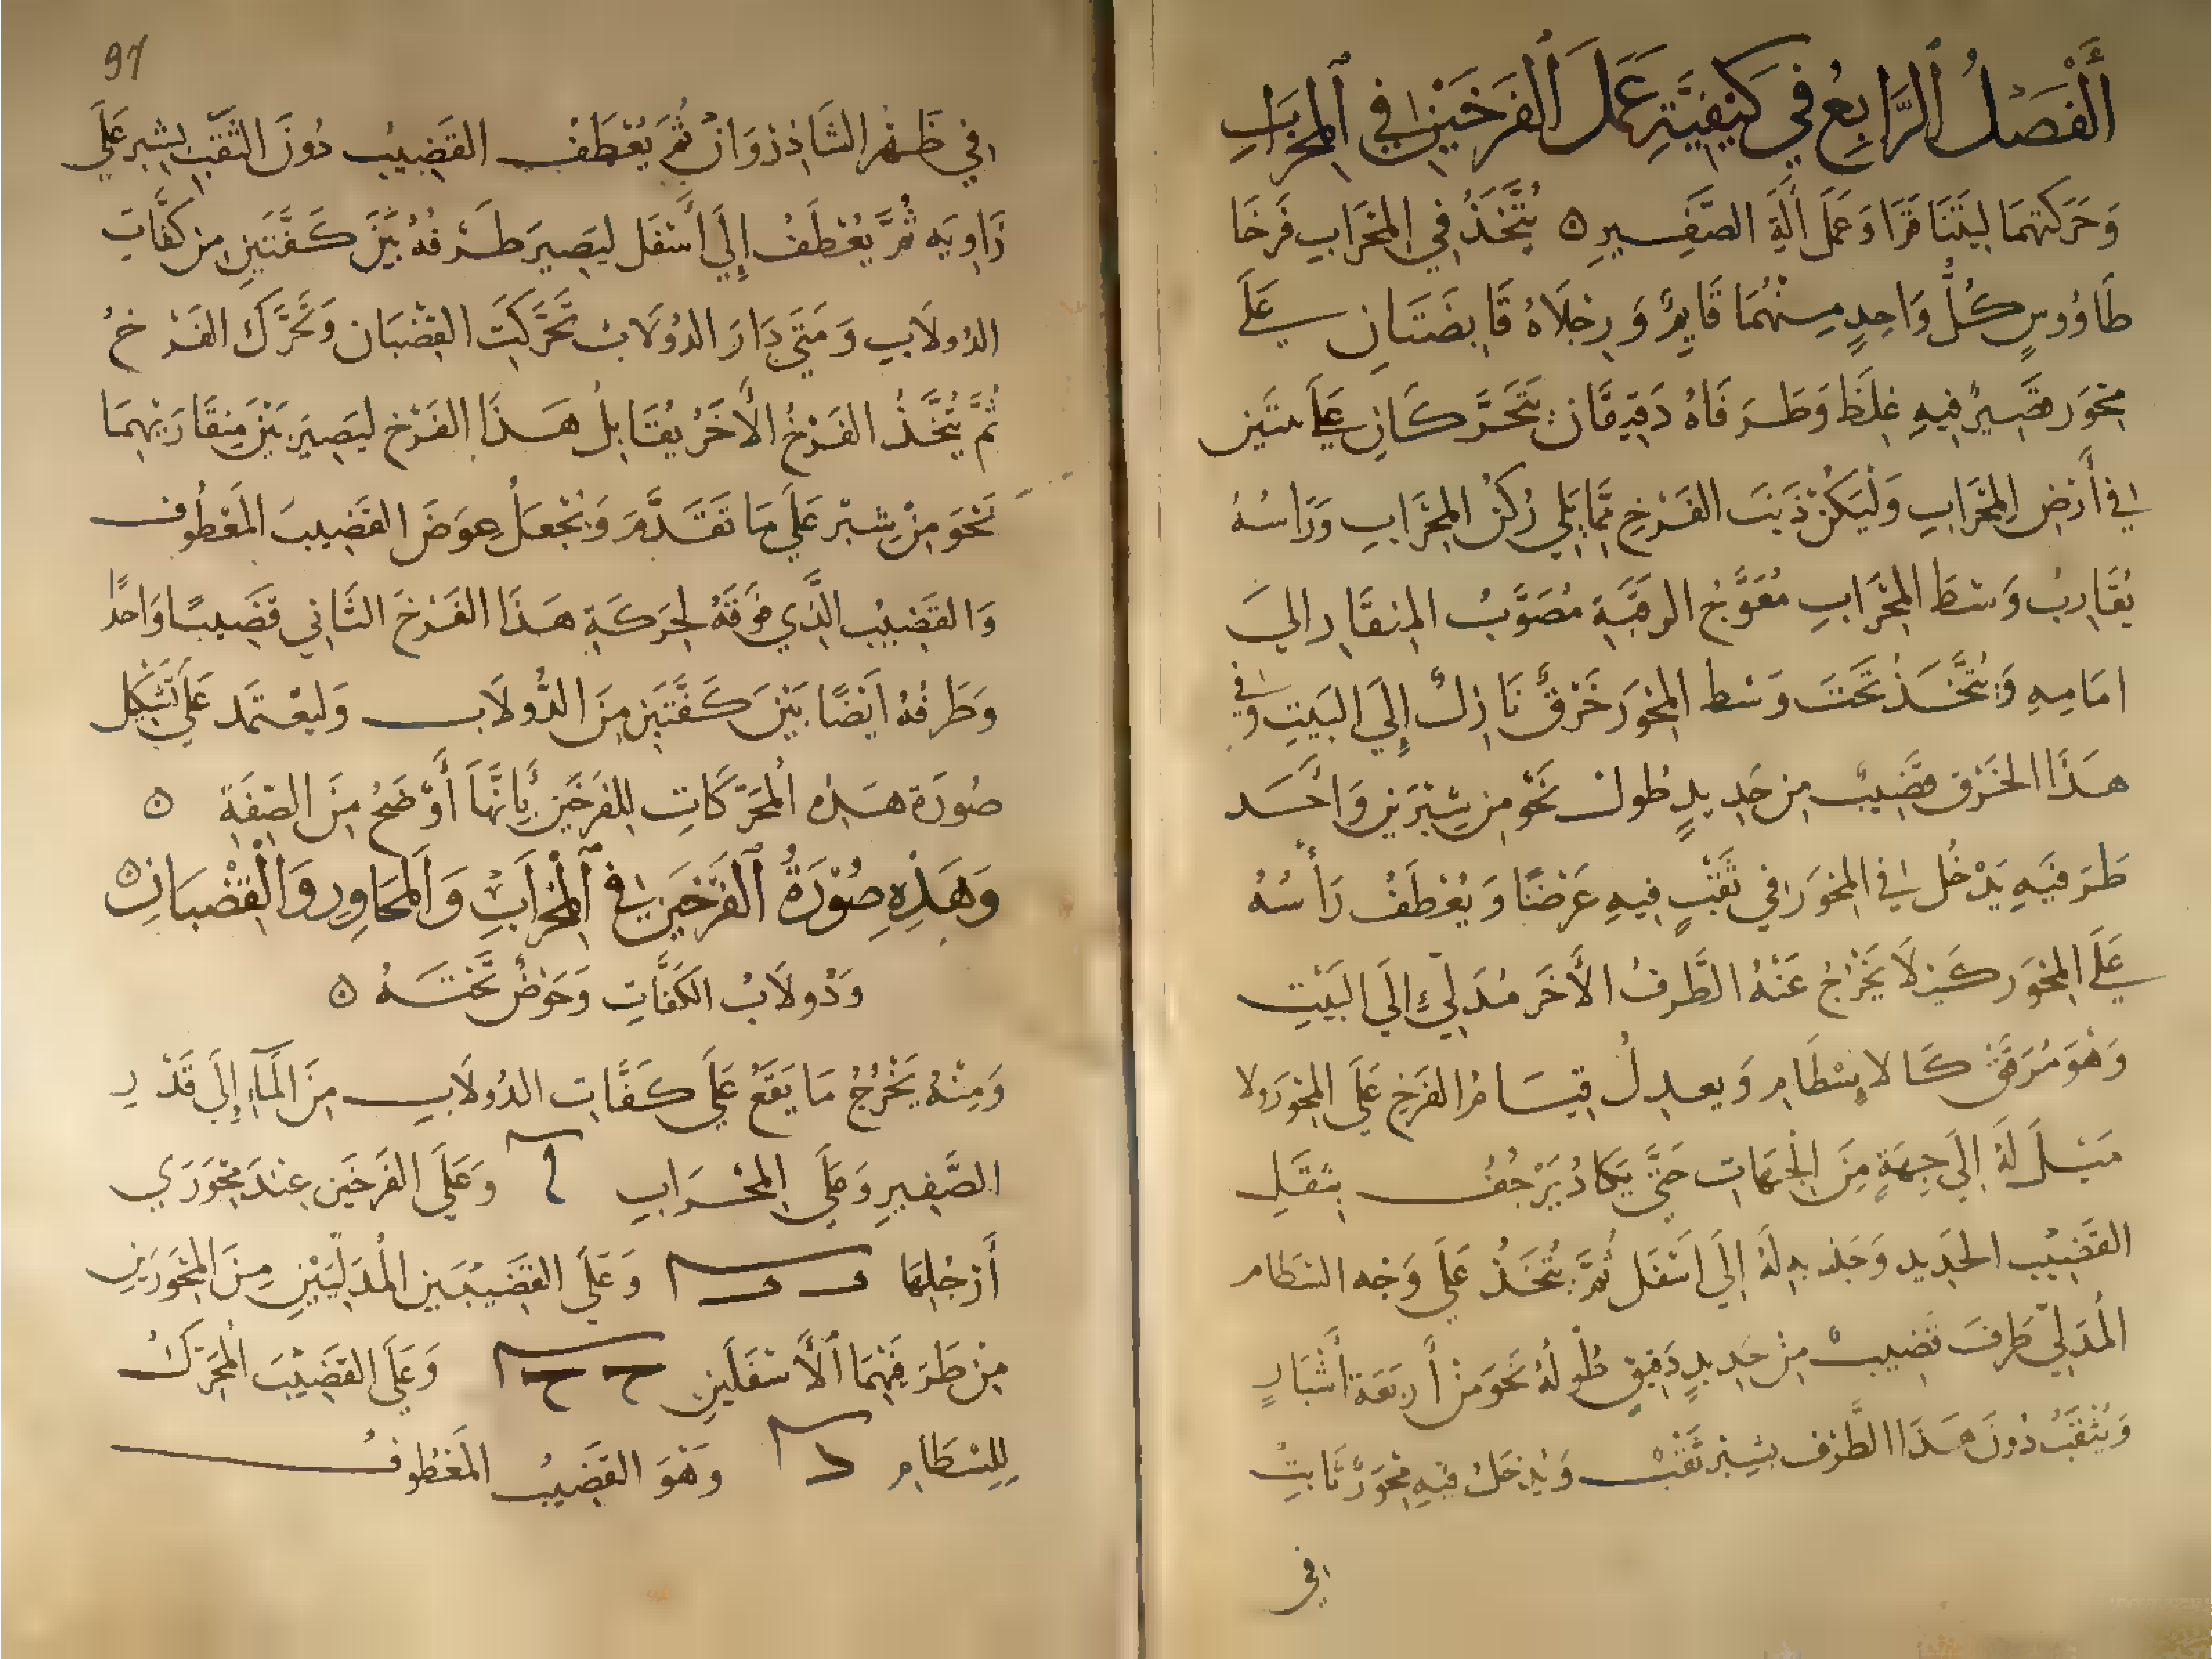 أَلْفَصْلُ ٱلرَّابِعُ فِي كَيْفِيَّةِ عَمَلِ ٱلْفَرْخَيْنِ فِي ٱلْمِحْرَابِ
وَحَرَكَتِهِمَا لِيَتَنَاقَرَا وَعَمَلِ آلَةِ الصَّفِيرِ ۞ يُتَّخَذُ فِي المِحْرَابِ فَرْخَا
طَاوُوسٍ كُلُّ وَاحِدٍ مِنْهُمَا قَايِمٌ وَرِجْلَاهُ قَابِضَتَانِ عَلَى
مِحْوَر قَصِيرٌ فِيهِ غِلَظ وَطَرَفَاهُ دَقِيقَان يَتَحَرَّكَانِ عَلَى سَنَيْنِ
فِي أَرْضِ المِحْرَابِ وَلْيَكُنْ ذَنَبُ الفَرْخِ مِمَّا يَلِي رُكْنَ المِحْرَابِ وَرَاسُهُ
يُقَارِبُ وَسَطَ المِحْرَابِ مُعَوَّجُ الرَقَبَةِ مُصَوَّبُ المِنْقَارِ إِلَى
امَامِهِ وَيُتَّخَذُ تَحْتَ وَسَط المِحْوَر خَرْقٌ نَازِلٌ إِلَى البَيْتِ وَفِي
هَذَا الخَرْق قَضِيبٌ مِن حَدِيدٍ طُولُ نَحْوٍ مِن شِبْرَيْنِ وَاحَد
طَرَفَيْهِ يَدْخُل فِي المِحْوَر فِي ثَقْبٍ فِيهِ عَرْضًا وَيُعْطَفُ رَأْسُهُ
عَلَى المِحْوَر كَيْ لَا يَخْرُجُ عَنْهُ الطَّرَفُ الأَخَر مُدَلَّى إِلَى البَيْتِ
وَهُوَ مُرَقَّقٌ كَالاسْطَامِ وَيعدلُ قِيَامُ الفَرْخِ عَلَى المِحْوَر وَلا
مَيْلَ لَهُ إِلَى جِهَةٍ مِنَ الجِهَاتِ حَتَّى يَكَادُ يَرْجُفُ بِثَقَلِ
القَضِيب الحَدِيد وَجَذبهِ لَهُ إِلَى اَسْفَل ثُمَّ يُتَّخَذُ عَلَى وَجْه السْطَام
المُدَلَّى طَرَفَ قَضِيبٌ مِنْ حَدِيدٍ دَقِيقٍ طُولُهُ نَحْوَ مِنْ أَرْبَعَة أَشْبَارٍ
وَيُثْقَبُ دُونَ هَذَا الطَّرْف بِشِبْر ثَقْبٌ وَيُدْخَلُ فِيهِ مِحْوَرٌ ثَابِتٌ
في
97
فِي ظَهْر الشَاذَرْوَانُ ثُمَّ يُعْطَفُ القَضِيبُ دُونَ الثَقْبِ بِشِبر عَلَى
زَاوِيَه ثُمَّ يُعْطَفُ إِلَى أَسْفَل لِيَصِيرَ طَرَفُهُ بَيْنَ كَفَّتَيْنِ مِن كَفَّاتِ
الدُولَابِ وَمَتَى دَارَ الدُولَابُ تَحَرَّكَتِ القُضْبَان وَتَحَرَّكَ الفَرْخُ
ثُمَّ يُتَّخَذُ الفَرْخُ الأَخَرُ يُقَابِلُ هَذَا الفَرْخ لِيَصِيرَ بَيْنَ مِنقَارَيْهِمَا
نَحْوَ مِنْ شِبْر عَلَى مَا تَقَدَّمَ وَيُجْعَلُ عِوَضَ القَضِيبِ المَعْطُوف
وَالقَضِيبُ الَّذِي فَوْقَهُ لِحَرَكَةِ هَذَا الفَرْخَ الثَّانِي قَضِيبًا وَاحدًا
وَطَرَفُهُ أَيْضًا بَيْنَ كَفَّتَيْنِ مِنَ الدُّولَابِ وَلْيعْتَمَد عَلَى تَشْكِيل
صُورَة هَذِهِ المُحَرِّكَاتِ لِلفَرْخَيْنِ بِأَنَّهَا أَوْضَحُ مِنَ الصِفَةِ ۞
وَهَذِهِ صُوْرَةُ ٱلْفَرْخَيْنِ فِي ٱلْمِحْرَابِ وَٱلْمَحَاوِر وَالْقُضْبَانِ ۞
وَدُولَابُ الكَفَّاتِ وَحَوْضٌ تَحْتَهُ ۞
وَمِنْهُ يَخْرُجُ مَا يَقَعُ عَلَى كَفَّاتِ الدُولَابِ مِنَ المَآءِ إِلَى قَدْرِ
الصَّفِيرِ وَعَلَى المِحْرَابِ آ وَعَلَى الفَرْخَيْن عِنْدَ مِحْوَرَي
أَرْجُلِهَا وَعَلَى القَضِيبَيْن المُدَلَّيَيْنِ مِنَ المِحْوَرَيْنِ
مِنْ طَرَفَيْهِمَا ٱلأَسْفَلَيْنِ ح ح وَعَلَى القَضِيْبَ المُحَرِّكُ
لِلِسْطَامِ د وَهُوَ القَضِيبُ المَعْطُوفُ